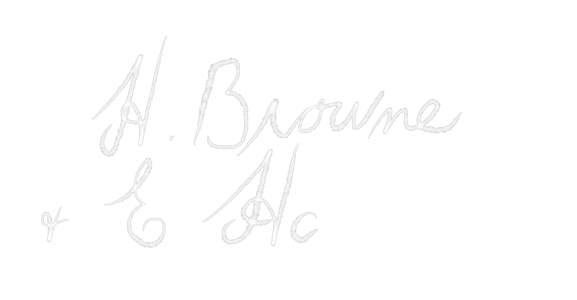 H. Browne
& E Hc